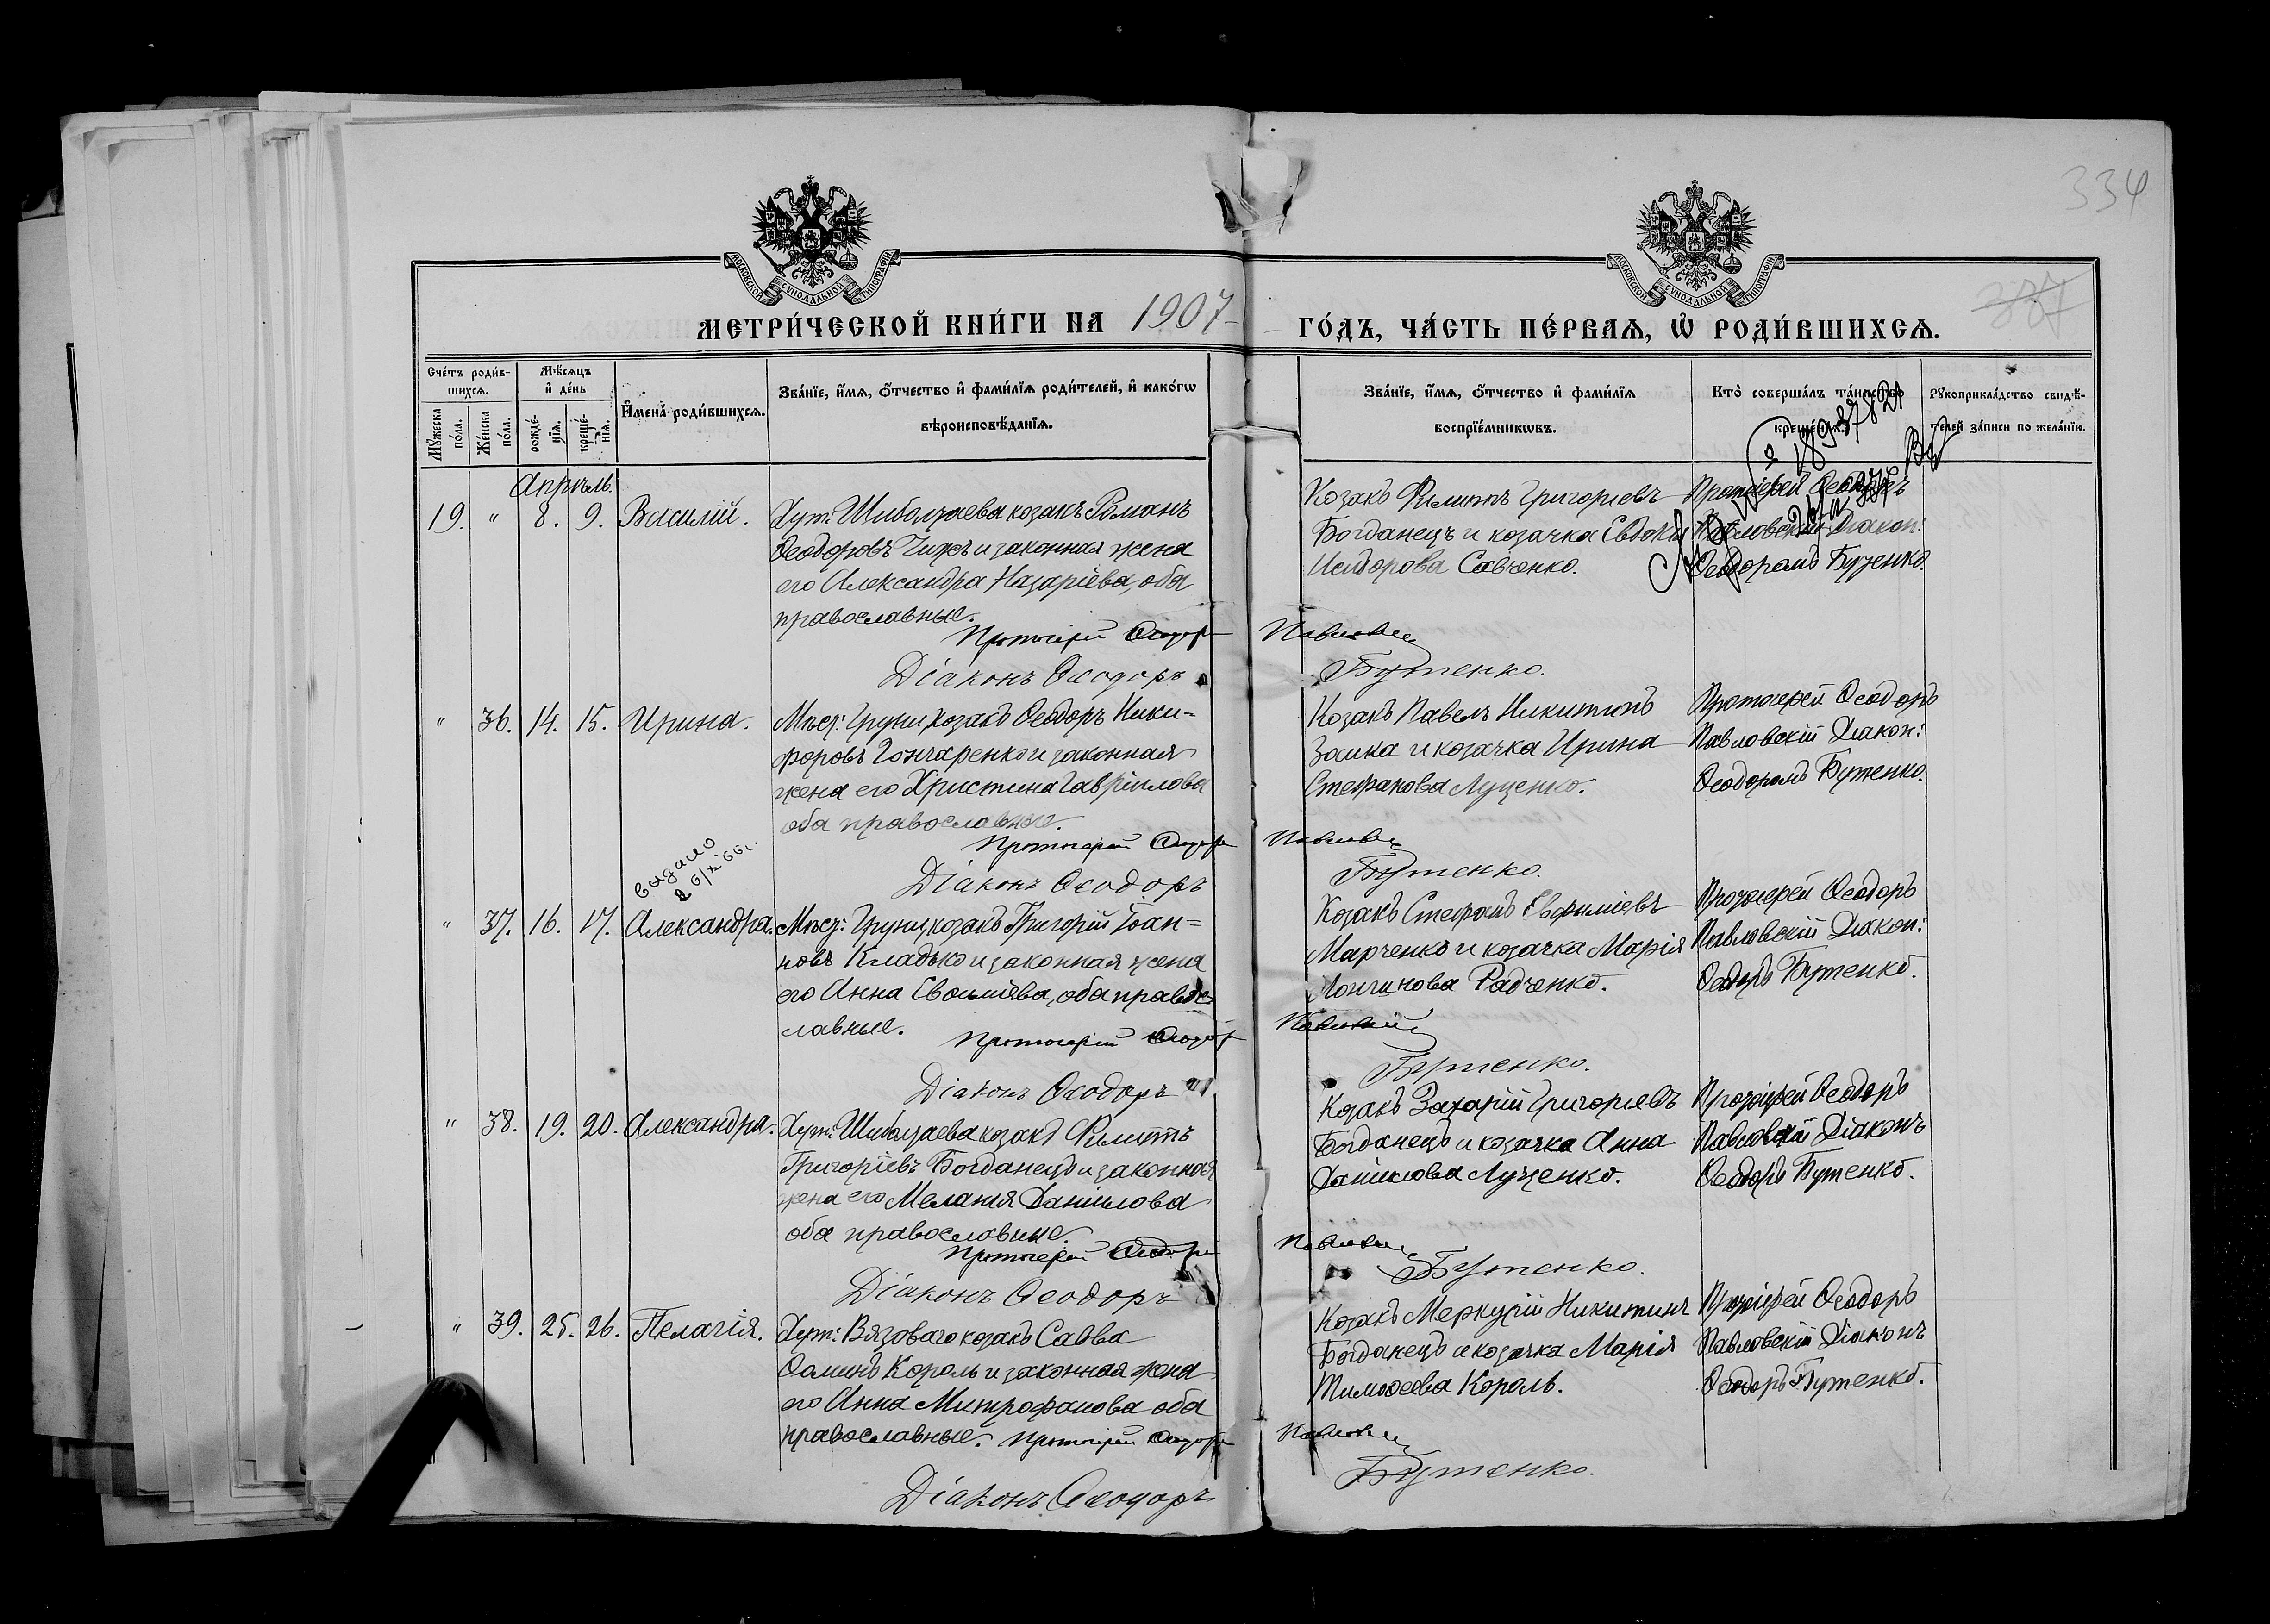 334
387
МОСКОВСКОЙ СѴНОДАЛЬНОЙ ТИПОГРАФІИ
МОСКОВСКОЙ СѴНОДАЛЬНОЙ ТИПОГРАФІИ
МЕТРИ́ЧЕСКОЙ КНИ́ГИ НА 1907
ГО́ДЪ, ЧА́СТЬ ПЕ́РВАѦ, Ѡ҆ РОДИ́ВШИХСѦ.
Сче́тъ роди́в-
шихсѧ.
Мꙋ́жеска по́ла.
Же́нска по́ла.
Мѣ́сѧцъ
и҆ де́нь
рожде́-
нїѧ.
креще́-
нїѧ.
И҆мена̀ роди́вшихсѧ.
Зва́нїе, и҆́мѧ, ѻ҆́тчество и҆ фами́лїѧ роди́телей, и҆ како́гѡ
вѣроисповѣ́данїѧ.
Зва́нїе, и҆́мѧ, ѻ҆́тчество и҆ фами́лїѧ
воспрїе́мникѡвъ.
Кто̀ соверша́лъ та́инство
креще́нїѧ.
Рꙋкоприкла́дство свидѣ́-
телей за́писи по жела́нїю.
Апрѣль.
19. " 8. 9. Василій.
Хут. Шиболтаева козакъ Романъ
Ѳеодоровъ Чижъ и законная жена
его Александра Назаріева, оба
православные.
Протоіерей Ѳеодоръ
Діаконъ Ѳеодоръ
Козакъ Филиппъ Григоріевъ
Богданецъ и козачка Евдокія
Исидорова Савченко.
Павловскій
Бутенко.
Протоіерей Ѳеодоръ
Павловскій Діакон:
Ѳеодоромъ Бутенко.
" 36. 14. 15. Ирина.
Мѣст: Груни, козакъ Ѳеодоръ Ники-
форовъ Гончаренко и законная
жена его Христина Гавріилова
оба православные.
Протоіерей Ѳеодоръ
Діаконъ Ѳеодоръ
Козакъ Павелъ Никитинъ
Заика и козачка Ирина
Стефанова Луценко.
Павловскій
Бутенко.
Протоіерей Ѳеодоръ
Павловскій Діакон:
Ѳеодоромъ Бутенко.
Выдано
2 6/XI 66 г.
" 37. 16. 17. Александра.
Мѣст: Груни, козакъ Григорій Іоан-
новъ Кладько и законная жена
его Анна Евсиміева, оба право-
славные.
Протоіерей Ѳеодоръ
Діаконъ Ѳеодоръ
Козакъ Стефанъ Евфиміевъ
Марченко и козачка Марія
Лонгинова Радченко.
Павловскій
Бутенко.
Протоіерей Ѳеодоръ
Павловскій Діакон:
Ѳеодоръ Бутенко.
" 38. 19. 20. Александра.
Хут: Шиболтаева козакъ Филиппъ
Григоріевъ Богданецъ и законная
жена его Меланія Даніилова
оба православные.
Протоіерей Ѳеодоръ
Діаконъ Ѳеодоръ
Козакъ Захарій Григоріевъ
Богданецъ и козачка Анна
Даніилова Луценко.
Павловскій
Бутенко.
Протоіерей Ѳеодоръ
Павловскій Діаконъ
Ѳеодоръ Бутенко.
" 39. 25. 26. Пелагія.
Хут: Вязоваго козакъ Савва
Ѳоминъ Король и законная жена
его Анна Митрофанова оба
православные. Протоіерей Ѳеодоръ
Діаконъ Ѳеодоръ
Козакъ Меркурій Никитинъ
Богданецъ и козачка Марія
Тимоѳеева Король.
Павловскій
Бутенко.
Протоіерей Ѳеодоръ
Павловскій Діаконъ
Ѳеодоръ Бутенко.